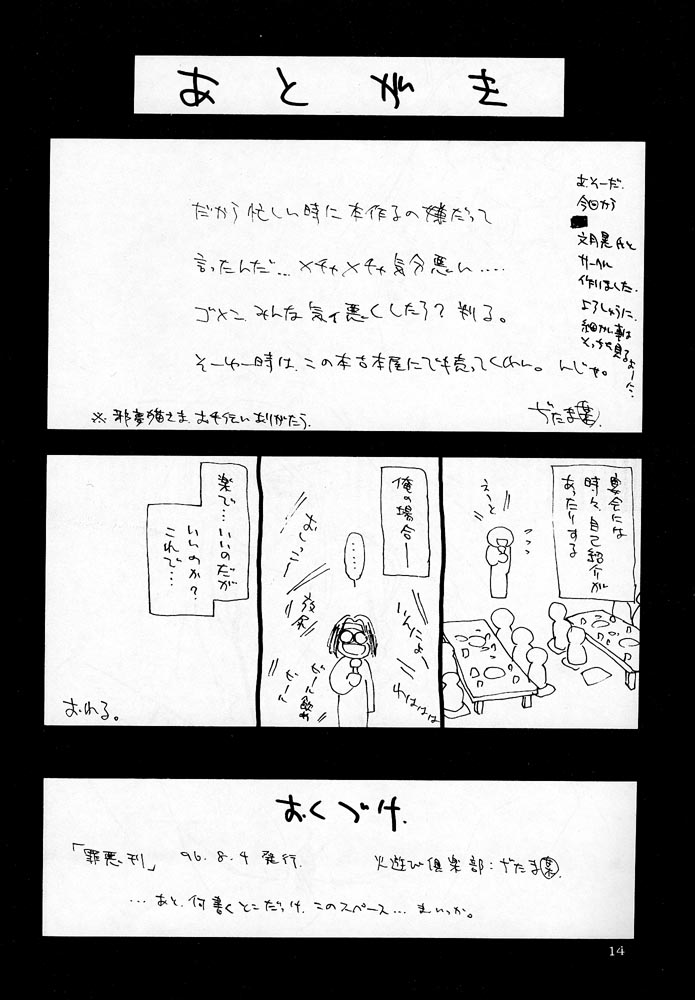 あとがき
だから忙しい時に本作るの嫌だって
言ったんだ…メチャメチャ気分悪い‥‥
ゴメン、みんな気ィ悪くしたろ？判る。
そーゆー時は、この本古本屋にでも売ってくれい。んじゃ。
ぢたま㊥
※邪夢猫さま、お手伝いありがたう。
あ、そーだ、
今回から
文月晃氏と
サークル
作りました。
よろしゅうに、
細かい事は
そっちを見るよーに。
宴会には
時々、自己紹介が
あったりする
えーと
俺の場合—
……
いんにょー
わははは
おしっこー
放尿
ビール
ビール飲め
楽で…いいのだが
いいのか？
これで…
おわる。
おくづけ
「罪悪刊」
96.8.4発行.
火遊び倶楽部：ぢたま
…あと、何書くとこだっけ、このスペース…まいっか。
14